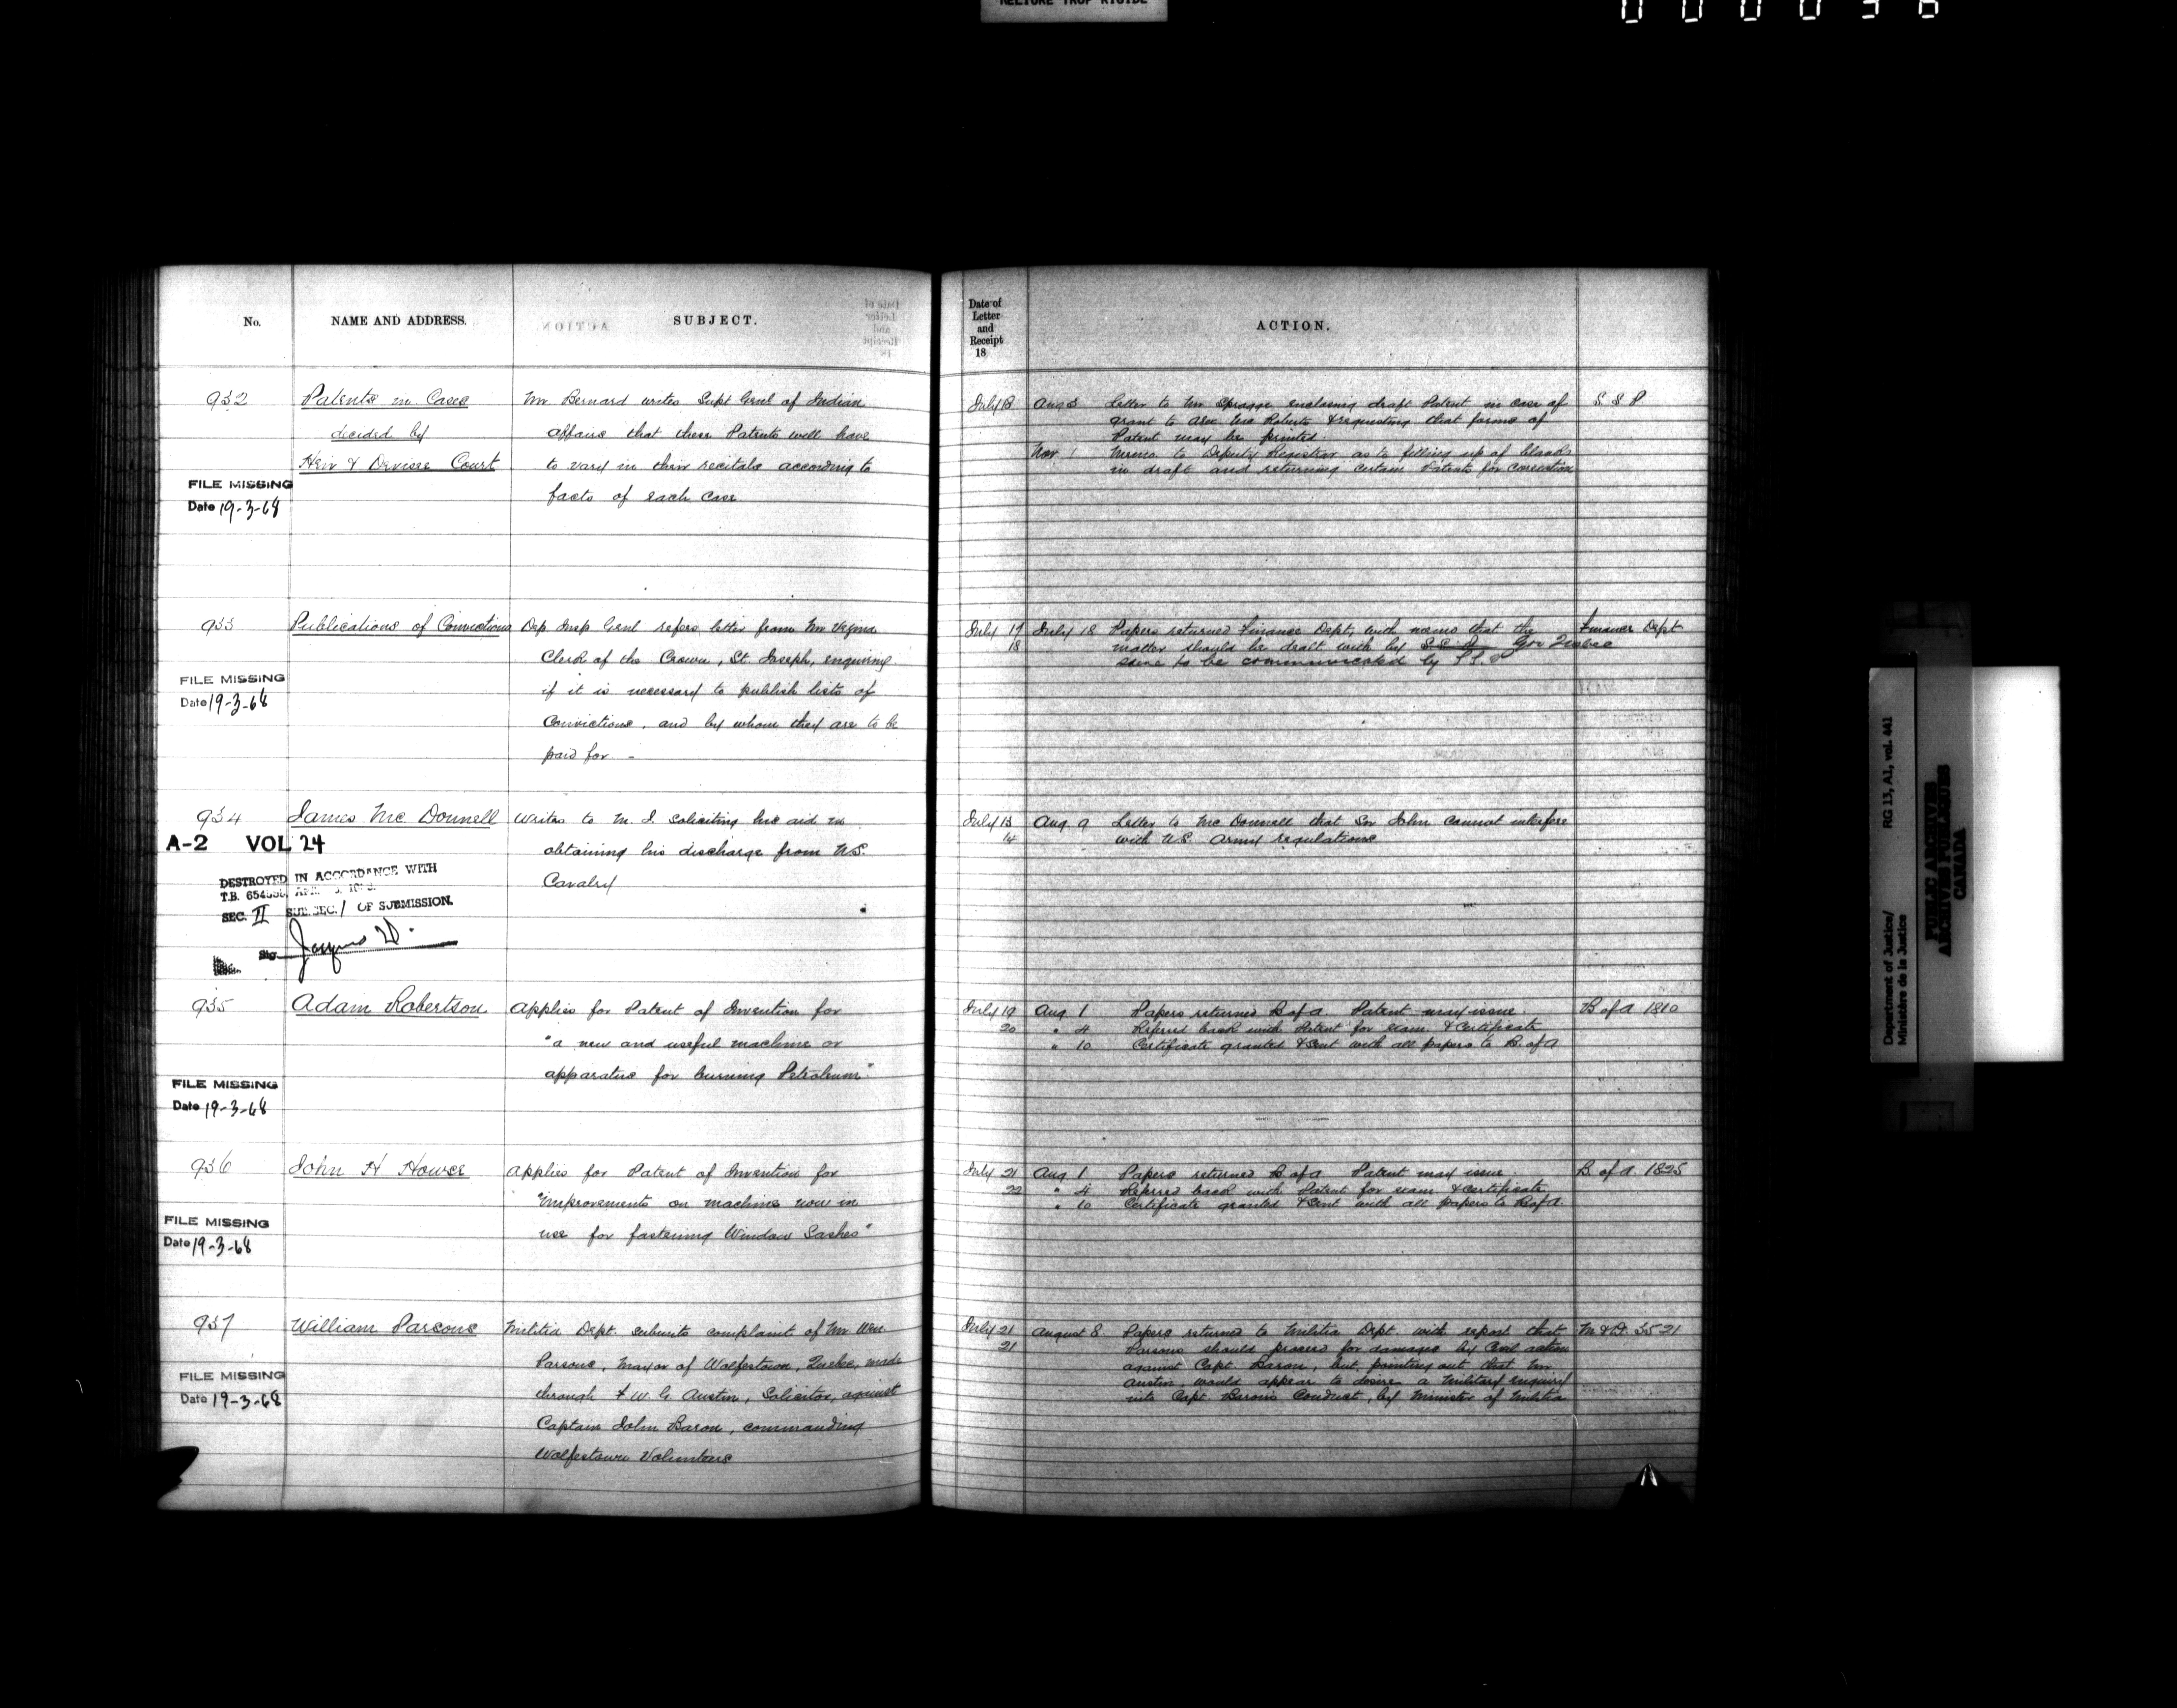 RELIURE TROP RIGIDE
No.
NAME AND ADDRESS.
SUBJECT.
932
Patents in Cases
decided by
Heir & Devisee Court
FILE MISSING
Date 19-3-68
Mr. Bernard writes Supt Genl of Indian
affairs that these Patents will have
to vary in their recitals according to
facts of each case
933
Publications of Convictions
FILE MISSING
Date 19-3-68
Dep. Insp Genl refers letter from Mr
Clerk of the Crown, St. Joseph, enquiring
if it is necessary to publish lists of
Convictions, and by whom they are to be
paid for -
934
James Mc Donnell
A-2 VOL 24
DESTROYED IN ACCORDANCE WITH
T.B.
SEC. II SUB SEC. 1 OF SUBMISSION.
Sig
writes to M. J. soliciting his aid in
obtaining his discharge from U.S.
Cavalry
935
Adam Robertson
FILE MISSING
Date 19-3-68
applies for Patent of Invention for
"a new and useful machine or
apparatus for burning Petroleum"
936
John H Howse
FILE MISSING
Date 19-3-68
applies for Patent of Invention for
"Improvements on machines now in
use for fastening Window Sashes"
937
William Parsons
FILE MISSING
Date 19-3-68
Militia Dept. submits complaint of Mr Wm.
Parsons, Mayor of Wolfestown, Quebec, made
through F. W. G. Austin, Solicitor, against
Captain John Baron, commanding
Wolfestown Volunteers
Date of
Letter
and
Receipt
18
ACTION.
July 13 Aug 3 Letter to Mr Spragge enclosing draft Patent in case of
grant to Alex McRoberts & requesting that forms of
Patent may be printed.
Nov 1 Memo. to Deputy Registrar as to filling up of blanks
in draft and returning certain Patents for correction
S. S. P.
July 17 July 18 Papers returned Finance Dept, with memo that the
18 matter should be dealt with by Gov Quebec
same to be communicated by P. S.
Finance Dept
July 13 Aug. 9 Letter to Mc Donnell that Sir John cannot interfere
14 with U.S. army regulations
July 19 Aug 1 Papers returned B of A Patent may issue
20 " 4 Referred back with Patent for exam. & Certificate
" 10 Certificate granted & sent with all papers to B. of A
B of A 1810
July 21 Aug 1 Papers returned B of A Patent may issue
22 " 4 Referred back with Patent for exam & certificate
" 10 Certificate granted & sent with all papers to B of A
B. of A. 1825
July 21 August 8 Papers returned to Militia Dept. with report that
21 Parsons should proceed for damages by Civil action
against Capt. Baron, but pointing out that Mr
Austin would appear to desire a Military enquiry
into Capt. Baron's Conduct, by Minister of Militia
M & D. 3521
Department of Justice/
Ministère de la Justice
RG 13, A1, vol. 441
PUBLIC ARCHIVES
ARCHIVES PUBLIQUES
CANADA